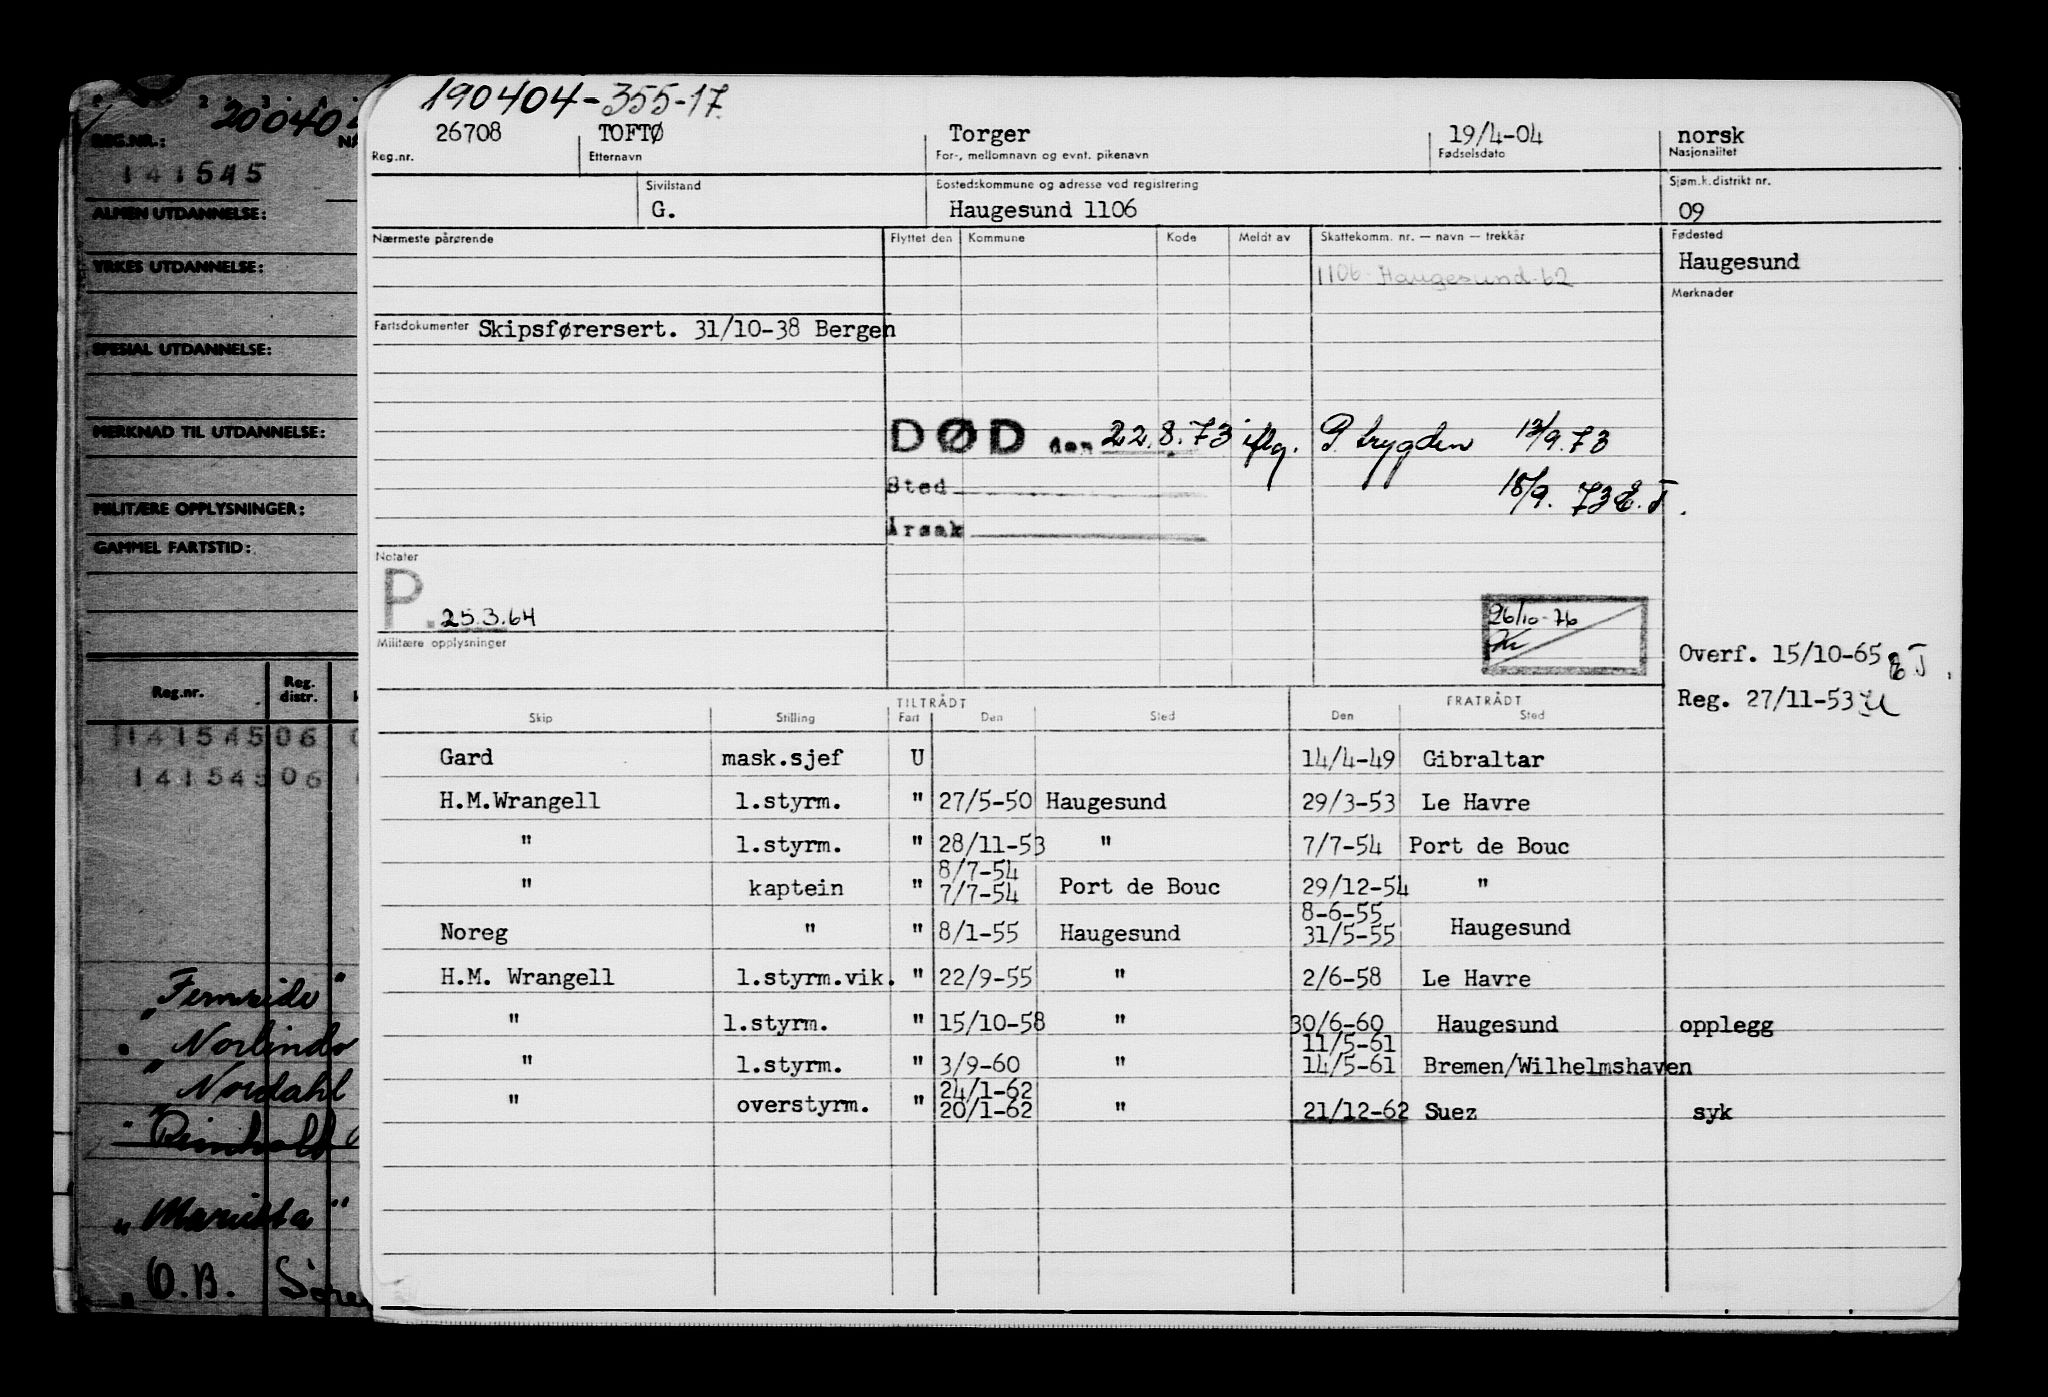 190404-355-17
26708 TOFTØ Torger 19/4-04 norsk
Reg.nr. Etternavn For-, mellomnavn og evnt. pikenavn Fødselsdato Nasjonalitet
Sivilstand Bostedskommune og adresse ved registrering Sjøm.k.distrikt nr.
G. Haugesund 1106 09
Nærmeste pårørende Flyttet den Kommune Kode Meldt av Skattekomm. nr. — navn — trekkår Fødested
1106 Haugesund-62 Haugesund
Merknader
Fartsdokumenter Skipsførersert. 31/10-38 Bergen
DØD den 22.8.73 iflg. P. trygden 13/9.73
Sted 18/9. 73 E.T.
Årsak
Notater
P. 25.3.64
26/10-76
Militære opplysninger
Overf. 15/10-65 E T.
Reg. 27/11-53
TILTRÅDT FRATRÅDT
Skip Stilling Fart Den Sted Den Sted
Gard mask.sjef U 14/4-49 Gibraltar
H.M.Wrangell 1.styrm. " 27/5-50 Haugesund 29/3-53 Le Havre
" 1.styrm. " 28/11-53 " 7/7-54 Port de Bouc
8/7-54
" kaptein " 7/7-54 Port de Bouc 29/12-54 "
8-6-55
Noreg " " 8/1-55 Haugesund 31/5-55 Haugesund
H.M. Wrangell 1.styrm.vik. " 22/9-55 " 2/6-58 Le Havre
" 1.styrm. " 15/10-58 " 30/6-60 Haugesund opplegg
11/5-61
" 1.styrm. " 3/9-60 " 14/5-61 Bremen/Wilhelmshaven
24/1-62
" overstyrm. " 20/1-62 " 21/12-62 Suez syk
REG.NR.:
141545
ALMEN UTDANNELSE:
YRKES UTDANNELSE:
SPESIAL UTDANNELSE:
MERKNAD TIL UTDANNELSE:
MILITÆRE OPPLYSNINGER:
GAMMEL FARTSTID:
Reg.nr. Reg. distr.
141545 06
141545 06
"Fernside"
"Norlindo
"Nordahl
"Reinholt
"Marietta"
"O.B. Søre